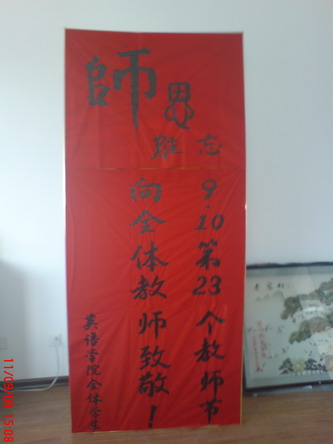 師恩
難忘
9.10第23个教师节
向全体教师致敬！
英语学院全体学生